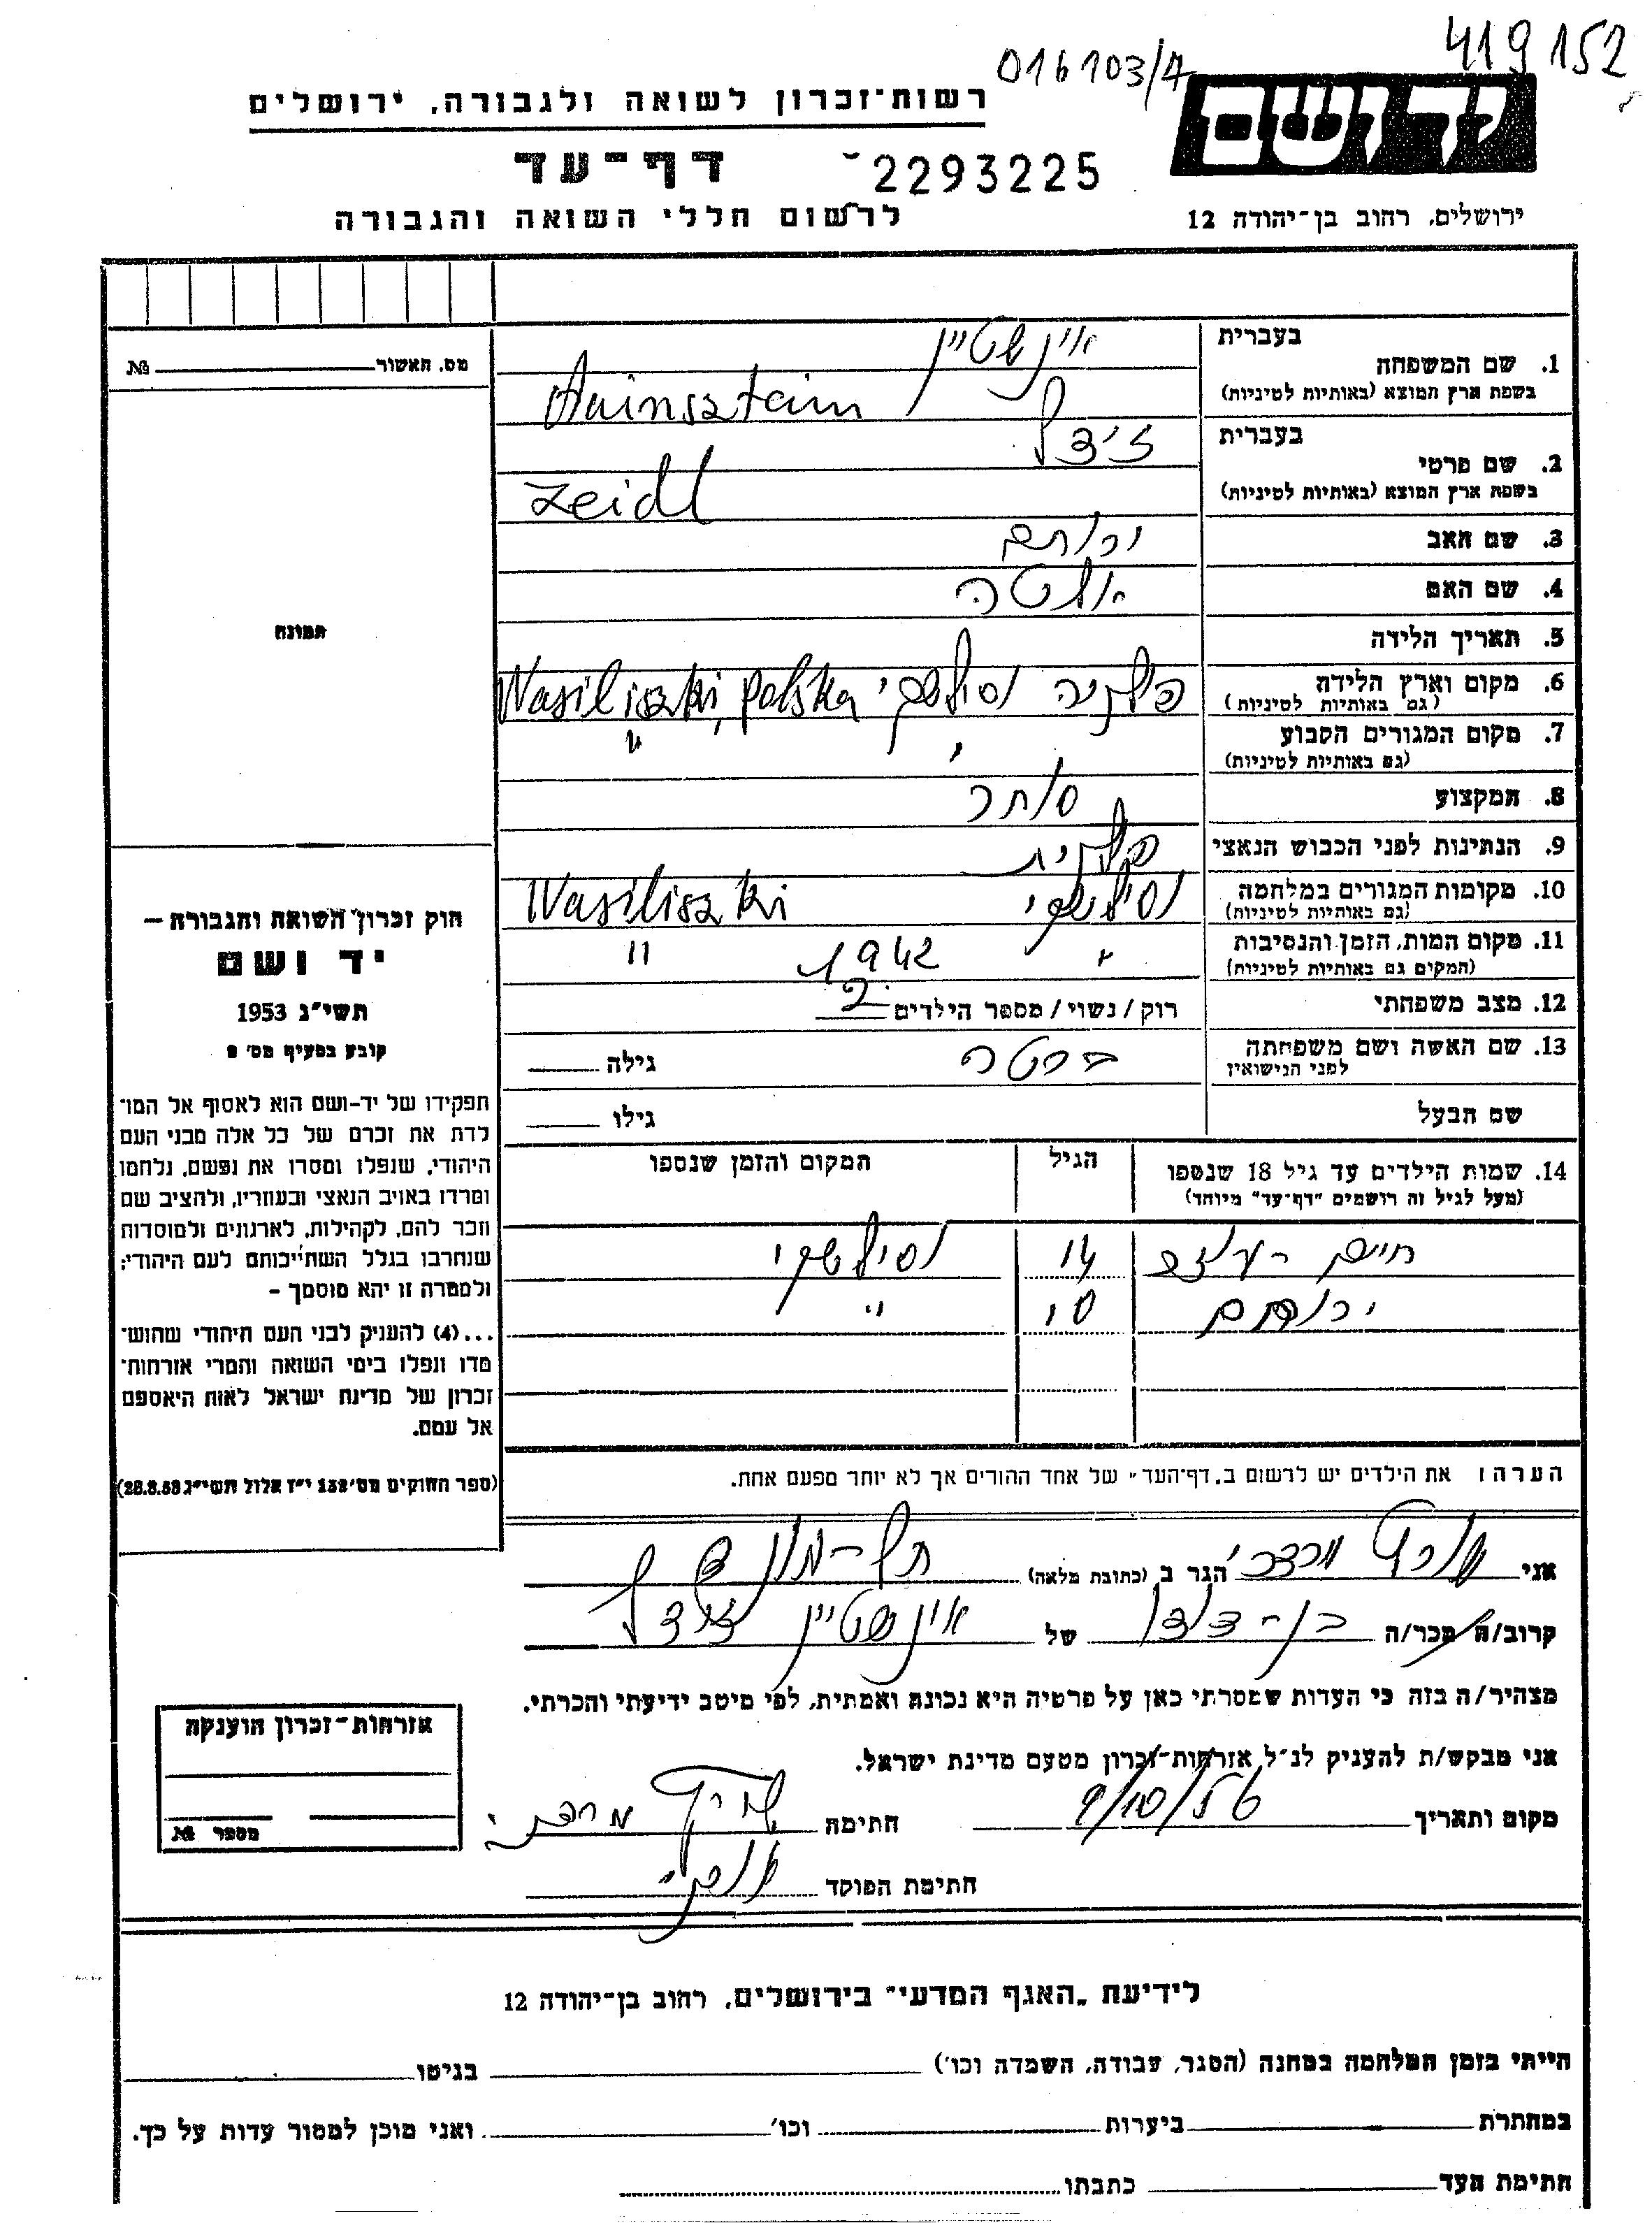 419152
016103/4
יד ושם
רשות־זכרון לשואה ולגבורה, ירושלים
דף־עד
2293225
לרשום חללי השואה והגבורה
ירושלים, רחוב בן־יהודה 12
מס. האשור № 
1. שם המשפחה בעברית איינשטיין
בשפת ארץ המוצא (באותיות לטיניות) Aainsztein
2. שם פרטי בעברית זיידל
בשפת ארץ המוצא (באותיות לטיניות) Zeidl
3. שם האב ירוחם
4. שם האם אלטה
5. תאריך הלידה
6. מקום וארץ הלידה (גם באותיות לטיניות) פולניה וסילישקי Wasiliszki, Polska
7. מקום המגורים הקבוע (גם באותיות לטיניות) " "
8. המקצוע סוחר
9. הנתינות לפני הכבוש הנאצי פולנית
10. מקומות המגורים במלחמה (גם באותיות לטיניות) וסילישקי Wasiliszki
11. מקום המות, הזמן והנסיבות (המקום גם באותיות לטיניות) " 1942 "
12. מצב משפחתי רוק / נשוי / מספר הילדים 2
13. שם האשה ושם משפחתה לפני הנישואין גילה
שם הבעל גילו
14. שמות הילדים עד גיל 18 שנספו (מעל לגיל זה רושמים "דף־עד" מיוחד) הגיל המקום והזמן שנספו
חיים 14 וסילישקי
ירוחם 10 "
הערה: את הילדים יש לרשום ב„דף־העד" של אחד ההורים אך לא יותר מפעם אחת.
אני הגר ב (כתובת מלאה) תל־מונד
קרוב/ה מכר/ה בן־דודו של איינשטיין זיידל
מצהיר/ה בזה כי העדות שמסרתי כאן על פרטיה היא נכונה ואמתית, לפי מיטב ידיעתי והכרתי.
אני מבקש/ת להעניק לנ״ל אזרחות־זכרון מטעם מדינת ישראל.
מקום ותאריך 9/10/56 חתימה
חתימת הפוקד
תמונה
חוק זכרון השואה והגבורה —
יד ושם
תשי״ג 1953
קובע בסעיף מס׳ 2
תפקידו של יד-ושם הוא לאסוף אל המו־
לדת את זכרם של כל אלה מבני העם
היהודי, שנפלו ומסרו את נפשם, נלחמו
ומרדו באויב הנאצי ובעוזריו, ולהציב שם
וזכר להם, לקהילות, לארגונים ולמוסדות
שנחרבו בגלל השתייכותם לעם היהודי;
ולמטרה זו יהא מוסמך –
...(4) להעניק לבני העם היהודי שהוש־
מדו ונפלו בימי השואה והמרי אזרחות־
זכרון של מדינת ישראל לאות היאספם
אל עמם.
(ספר החוקים מס׳ 132 י״ז אלול תשי״ג 28.8.53)
אזרחות־זכרון הוענקה
מספר №
לידיעת „האגף המדעי" בירושלים, רחוב בן־יהודה 12
הייתי בזמן המלחמה במחנה (הסגר, עבודה, השמדה וכו׳) בגיטו
במחתרת ביערות וכו׳ ואני מוכן למסור עדות על כך.
חתימת העד כתבתו